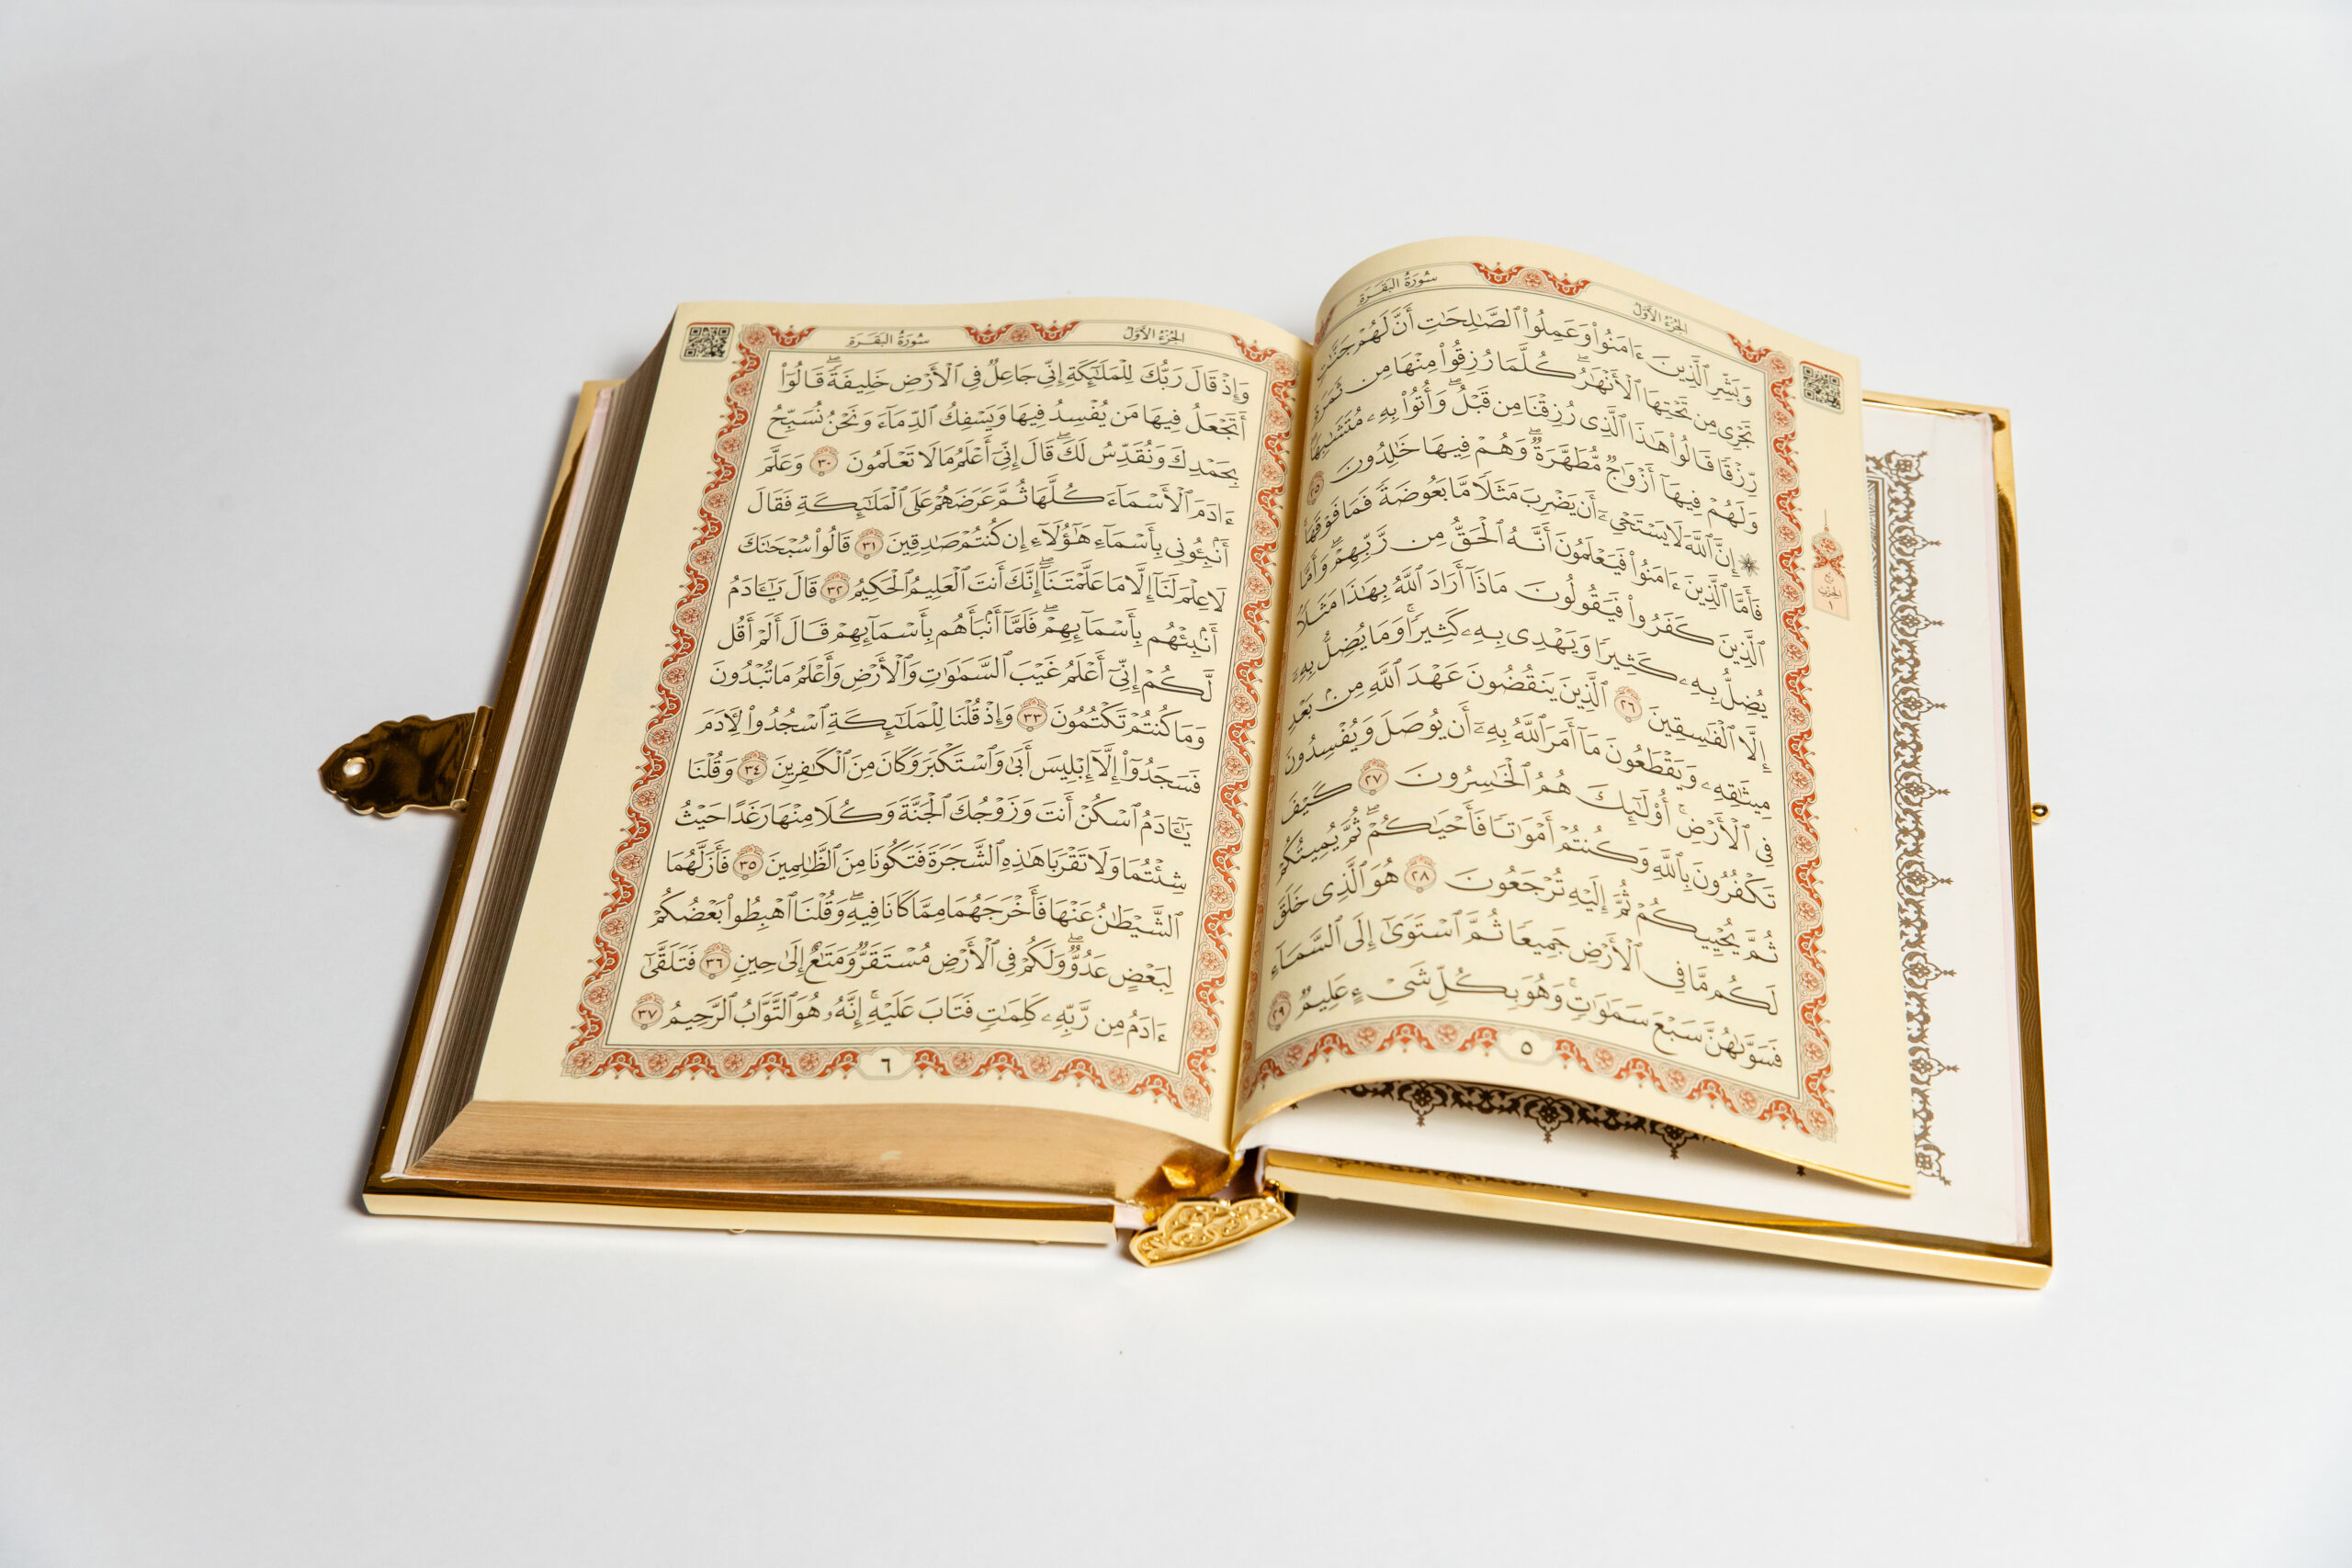 سُورَةُ البَقَرَةِ
الجُزْءُ الأَوَّلُ
وَبَشِّرِ ٱلَّذِينَ ءَامَنُوا۟ وَعَمِلُوا۟ ٱلصَّـٰلِحَـٰتِ أَنَّ لَهُمْ جَنَّـٰتٍ
تَجْرِى مِن تَحْتِهَا ٱلْأَنْهَـٰرُ ۖ كُلَّمَا رُزِقُوا۟ مِنْهَا مِن ثَمَرَةٍ
رِّزْقًا ۙ قَالُوا۟ هَـٰذَا ٱلَّذِى رُزِقْنَا مِن قَبْلُ ۖ وَأُتُوا۟ بِهِۦ مُتَشَـٰبِهًا ۖ
وَلَهُمْ فِيهَآ أَزْوَٰجٌ مُّطَهَّرَةٌ ۖ وَهُمْ فِيهَا خَـٰلِدُونَ ٢٥
۞ إِنَّ ٱللَّهَ لَا يَسْتَحْىِۦٓ أَن يَضْرِبَ مَثَلًا مَّا بَعُوضَةً فَمَا فَوْقَهَا ۚ
فَأَمَّا ٱلَّذِينَ ءَامَنُوا۟ فَيَعْلَمُونَ أَنَّهُ ٱلْحَقُّ مِن رَّبِّهِمْ ۖ وَأَمَّا
ٱلَّذِينَ كَفَرُوا۟ فَيَقُولُونَ مَاذَآ أَرَادَ ٱللَّهُ بِهَـٰذَا مَثَلًا ۘ
يُضِلُّ بِهِۦ كَثِيرًا وَيَهْدِى بِهِۦ كَثِيرًا ۚ وَمَا يُضِلُّ بِهِۦٓ
إِلَّا ٱلْفَـٰسِقِينَ ٢٦ ٱلَّذِينَ يَنقُضُونَ عَهْدَ ٱللَّهِ مِنۢ بَعْدِ
مِيثَـٰقِهِۦ وَيَقْطَعُونَ مَآ أَمَرَ ٱللَّهُ بِهِۦٓ أَن يُوصَلَ وَيُفْسِدُونَ
فِى ٱلْأَرْضِ ۚ أُو۟لَـٰٓئِكَ هُمُ ٱلْخَـٰسِرُونَ ٢٧ كَيْفَ
تَكْفُرُونَ بِٱللَّهِ وَكُنتُمْ أَمْوَٰتًا فَأَحْيَـٰكُمْ ۖ ثُمَّ يُمِيتُكُمْ
ثُمَّ يُحْيِيكُمْ ثُمَّ إِلَيْهِ تُرْجَعُونَ ٢٨ هُوَ ٱلَّذِى خَلَقَ
لَكُم مَّا فِى ٱلْأَرْضِ جَمِيعًا ثُمَّ ٱسْتَوَىٰٓ إِلَى ٱلسَّمَآءِ
فَسَوَّىٰهُنَّ سَبْعَ سَمَـٰوَٰتٍ ۚ وَهُوَ بِكُلِّ شَىْءٍ عَلِيمٌ ٢٩
٥
الجُزْءُ الأَوَّلُ
سُورَةُ البَقَرَةِ
وَإِذْ قَالَ رَبُّكَ لِلْمَلَـٰٓئِكَةِ إِنِّى جَاعِلٌ فِى ٱلْأَرْضِ خَلِيفَةً ۖ قَالُوٓا۟
أَتَجْعَلُ فِيهَا مَن يُفْسِدُ فِيهَا وَيَسْفِكُ ٱلدِّمَآءَ وَنَحْنُ نُسَبِّحُ
بِحَمْدِكَ وَنُقَدِّسُ لَكَ ۖ قَالَ إِنِّىٓ أَعْلَمُ مَا لَا تَعْلَمُونَ ٣٠ وَعَلَّمَ
ءَادَمَ ٱلْأَسْمَآءَ كُلَّهَا ثُمَّ عَرَضَهُمْ عَلَى ٱلْمَلَـٰٓئِكَةِ فَقَالَ
أَنۢبِـُٔونِى بِأَسْمَآءِ هَـٰٓؤُلَآءِ إِن كُنتُمْ صَـٰدِقِينَ ٣١ قَالُوا۟ سُبْحَـٰنَكَ
لَا عِلْمَ لَنَآ إِلَّا مَا عَلَّمْتَنَآ ۖ إِنَّكَ أَنتَ ٱلْعَلِيمُ ٱلْحَكِيمُ ٣٢ قَالَ يَـٰٓـَٔادَمُ
أَنۢبِئْهُم بِأَسْمَآئِهِمْ ۖ فَلَمَّآ أَنۢبَأَهُم بِأَسْمَآئِهِمْ قَالَ أَلَمْ أَقُل
لَّكُمْ إِنِّىٓ أَعْلَمُ غَيْبَ ٱلسَّمَـٰوَٰتِ وَٱلْأَرْضِ وَأَعْلَمُ مَا تُبْدُونَ
وَمَا كُنتُمْ تَكْتُمُونَ ٣٣ وَإِذْ قُلْنَا لِلْمَلَـٰٓئِكَةِ ٱسْجُدُوا۟ لِـَٔادَمَ
فَسَجَدُوٓا۟ إِلَّآ إِبْلِيسَ أَبَىٰ وَٱسْتَكْبَرَ وَكَانَ مِنَ ٱلْكَـٰفِرِينَ ٣٤ وَقُلْنَا
يَـٰٓـَٔادَمُ ٱسْكُنْ أَنتَ وَزَوْجُكَ ٱلْجَنَّةَ وَكُلَا مِنْهَا رَغَدًا حَيْثُ
شِئْتُمَا وَلَا تَقْرَبَا هَـٰذِهِ ٱلشَّجَرَةَ فَتَكُونَا مِنَ ٱلظَّـٰلِمِينَ ٣٥ فَأَزَلَّهُمَا
ٱلشَّيْطَـٰنُ عَنْهَا فَأَخْرَجَهُمَا مِمَّا كَانَا فِيهِ ۖ وَقُلْنَا ٱهْبِطُوا۟ بَعْضُكُمْ
لِبَعْضٍ عَدُوٌّ ۖ وَلَكُمْ فِى ٱلْأَرْضِ مُسْتَقَرٌّ وَمَتَـٰعٌ إِلَىٰ حِينٍ ٣٦ فَتَلَقَّىٰٓ
ءَادَمُ مِن رَّبِّهِۦ كَلِمَـٰتٍ فَتَابَ عَلَيْهِ ۚ إِنَّهُۥ هُوَ ٱلتَّوَّابُ ٱلرَّحِيمُ ٣٧
٦